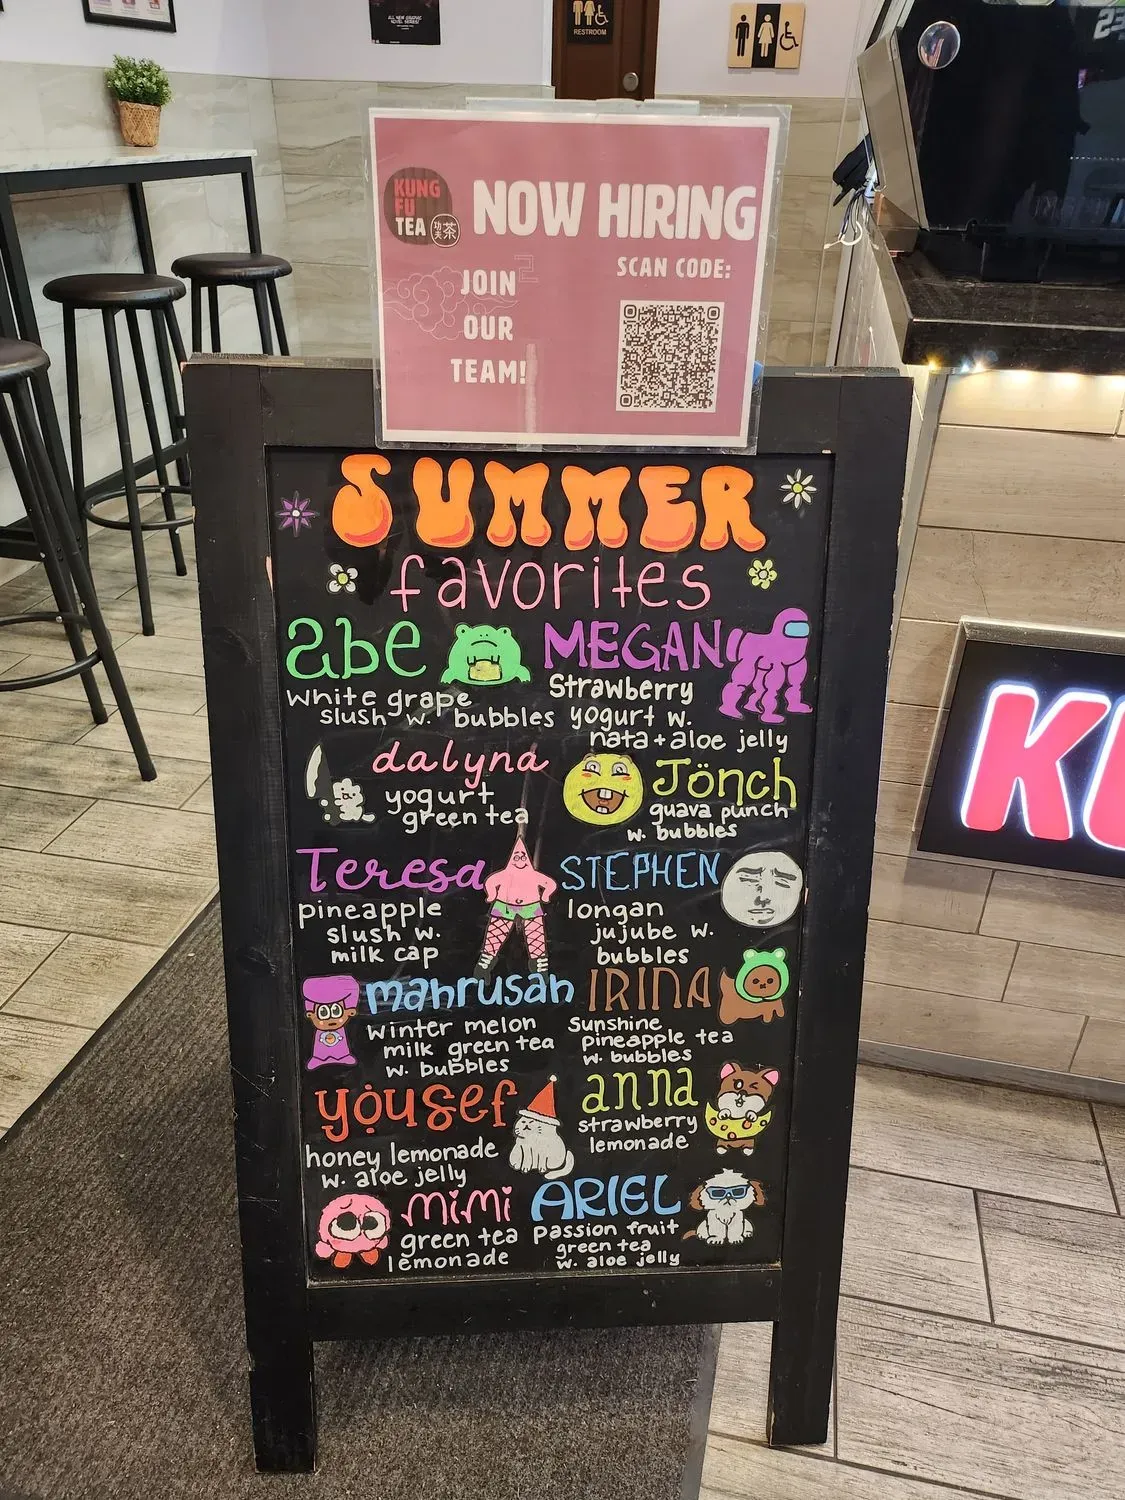 ALL NEW GRAPHIC
NOVEL SERIES!
RESTROOM
KUNG
FU
TEA
功夫茶
NOW HIRING
JOIN
OUR
TEAM!
SCAN CODE:
SUMMER
favorites
abe
white grape
slush w. bubbles
MEGAN
Strawberry
yogurt w.
nata + aloe jelly
dalyna
yogurt
green tea
Jönch
guava punch
w. bubbles
Teresa
pineapple
slush w.
milk cap
STEPHEN
longan
jujube w.
bubbles
mahrusah
winter melon
milk green tea
w. bubbles
IRINA
Sunshine
pineapple tea
w. bubbles
yousef
honey lemonade
w. aloe jelly
anna
strawberry
lemonade
mimi
green tea
lemonade
ARIEL
passion fruit
green tea
w. aloe jelly